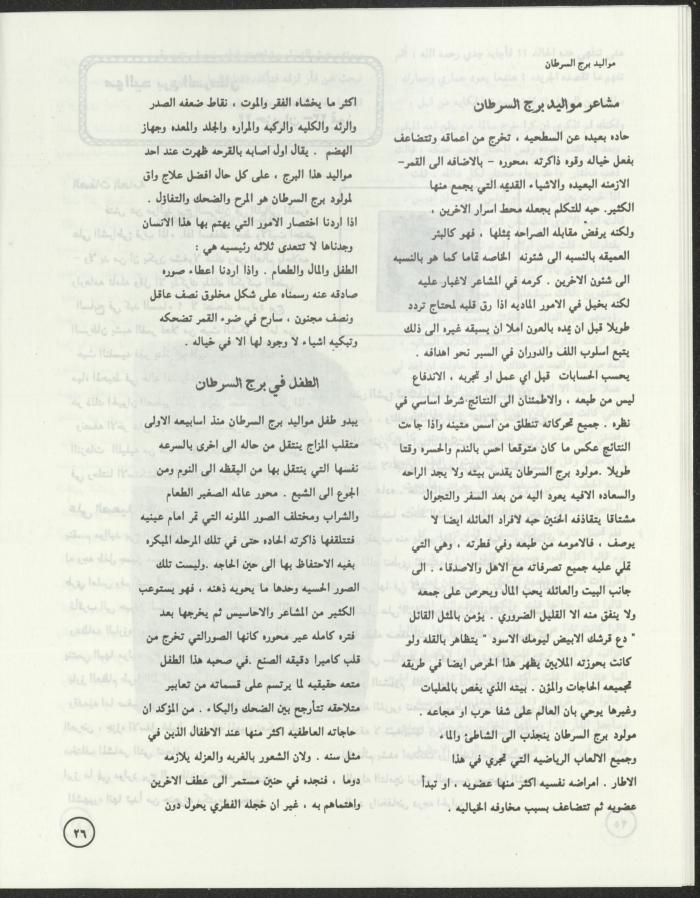 مواليد برج السرطان
مشاعر مواليد برج السرطان
حاده بعيده عن السطحيه ، تخرج من اعماقه وتتضاعف
بفعل خياله وقوه ذاكرته ،محوره - بالاضافه الى القمر-
الازمنه البعيده والاشياء القديمه التي يجمع منها
الكثير. حبه للتكلم يجعله محط اسرار الاخرين ،
ولكنه يرفض مقابله الصراحه بمثلها ، فهو كالبئر
العميقه بالنسبه الى شئونه الخاصه تماما كما هو بالنسبه
الى شئون الاخرين . كرمه في المشاعر لاغبار عليه
لكنه بخيل في الامور الماديه اذا رق قلبه لمحتاج تردد
طويلا قبل ان يمده بالعون املا ان يسبقه غيره الى ذلك
يتبع اسلوب اللف والدوران في السير نحو اهدافه .
يحسب الحسابات قبل اي عمل او تجربه ، الاندفاع
ليس من طبعه ، والاطمئنان الى النتائج شرط اساسي في
نظره . جميع تحركاته تنطلق من اسس متينه واذا جاءت
النتائج عكس ما كان متوقعا احس بالندم والحسره وقتا
طويلا .مولود برج السرطان يقدس بيته ولا يجد الراحه
والسعاده الافيه يعود اليه من بعد السفر والتجوال
مشتاقا يتقاذفه الحنين حبه لافراد العائله ايضا لا
يوصف ، فالامومه من طبعه وفي فطرته ، وهي التي
تملي عليه جميع تصرفاته مع الاهل والاصدقاء . الى
جانب البيت والعائله يحب المال ويحرص على جمعه
ولا ينفق منه الا القليل الضروري . يؤمن بالمثل القائل
" دع قرشك الابيض ليومك الاسود " يتظاهر بالقله ولو
كانت بحوزته الملايين يظهر هذا الحرص ايضا في طريقه
تجميعه الحاجات والمؤن . بيته الذي يغص بالمعلبات
وغيرها يوحي بان العالم على شفا حرب او مجاعه .
مولود برج السرطان ينجذب الى الشاطئ والماء
وجميع الالعاب الرياضيه التي تجري في هذا
الاطار . امراضه نفسيه اكثر منها عضويه ، او تبدأ
عضويه ثم تتضاعف بسبب مخاوفه الخياليه .
اكثر ما يخشاه الفقر والموت ، نقاط ضعفه الصدر
والرئه والكليه والركبه والمراره والجلد والمعده وجهاز
الهضم . يقال اول اصابه بالقرحه ظهرت عند احد
مواليد هذا البرج ، على كل حال افضل علاج واق
لمولود برج السرطان هو المرح والضحك والتفاؤل .
اذا اردنا اختصار الامور التي يهتم بها هذا الانسان
وجدناها لا تتعدى ثلاثه رئيسيه هي :
الطفل والمال والطعام . واذا اردنا اعطاء صوره
صادقه عنه رسمناه على شكل مخلوق نصف عاقل
ونصف مجنون ، سارح في ضوء القمر تضحكه
وتبكيه اشياء لا وجود لها الا في خياله .
الطفل في برج السرطان
يبدو طفل مواليد برج السرطان منذ اسابيعه الاولى
متقلب المزاج ينتقل من حاله الى اخرى بالسرعه
نفسها التي ينتقل بها من اليقظه الى النوم ومن
الجوع الى الشبع . محور عالمه الصغير الطعام
والشراب ومختلف الصور الملونه التي تمر امام عينيه
فتتلقفها ذاكرته الحاده حتى في تلك المرحله المبكره
بغيه الاحتفاظ بها الى حين الحاجه .وليست تلك
الصور الحسيه وحدها ما يحويه ذهنه ، فهو يستوعب
الكثير من المشاعر والاحاسيس ثم يخرجها بعد
فتره كامله عبر محوره كانها الصورالتي تخرج من
قلب كاميرا دقيقه الصنع .في صحبه هذا الطفل
متعه حقيقيه لما يرتسم على قسماته من تعابير
متلاحقه تتأرجح بين الضحك والبكاء . من المؤكد ان
حاجاته العاطفيه اكثر منها عند الاطفال الذين في
مثل سنه . ولان الشعور بالغربه والعزله يلازمه
دوما ، فنجده في حنين مستمر الى عطف الاخرين
واهتمامهم به ، غير ان خجله الفطري يحول دون
٢٦